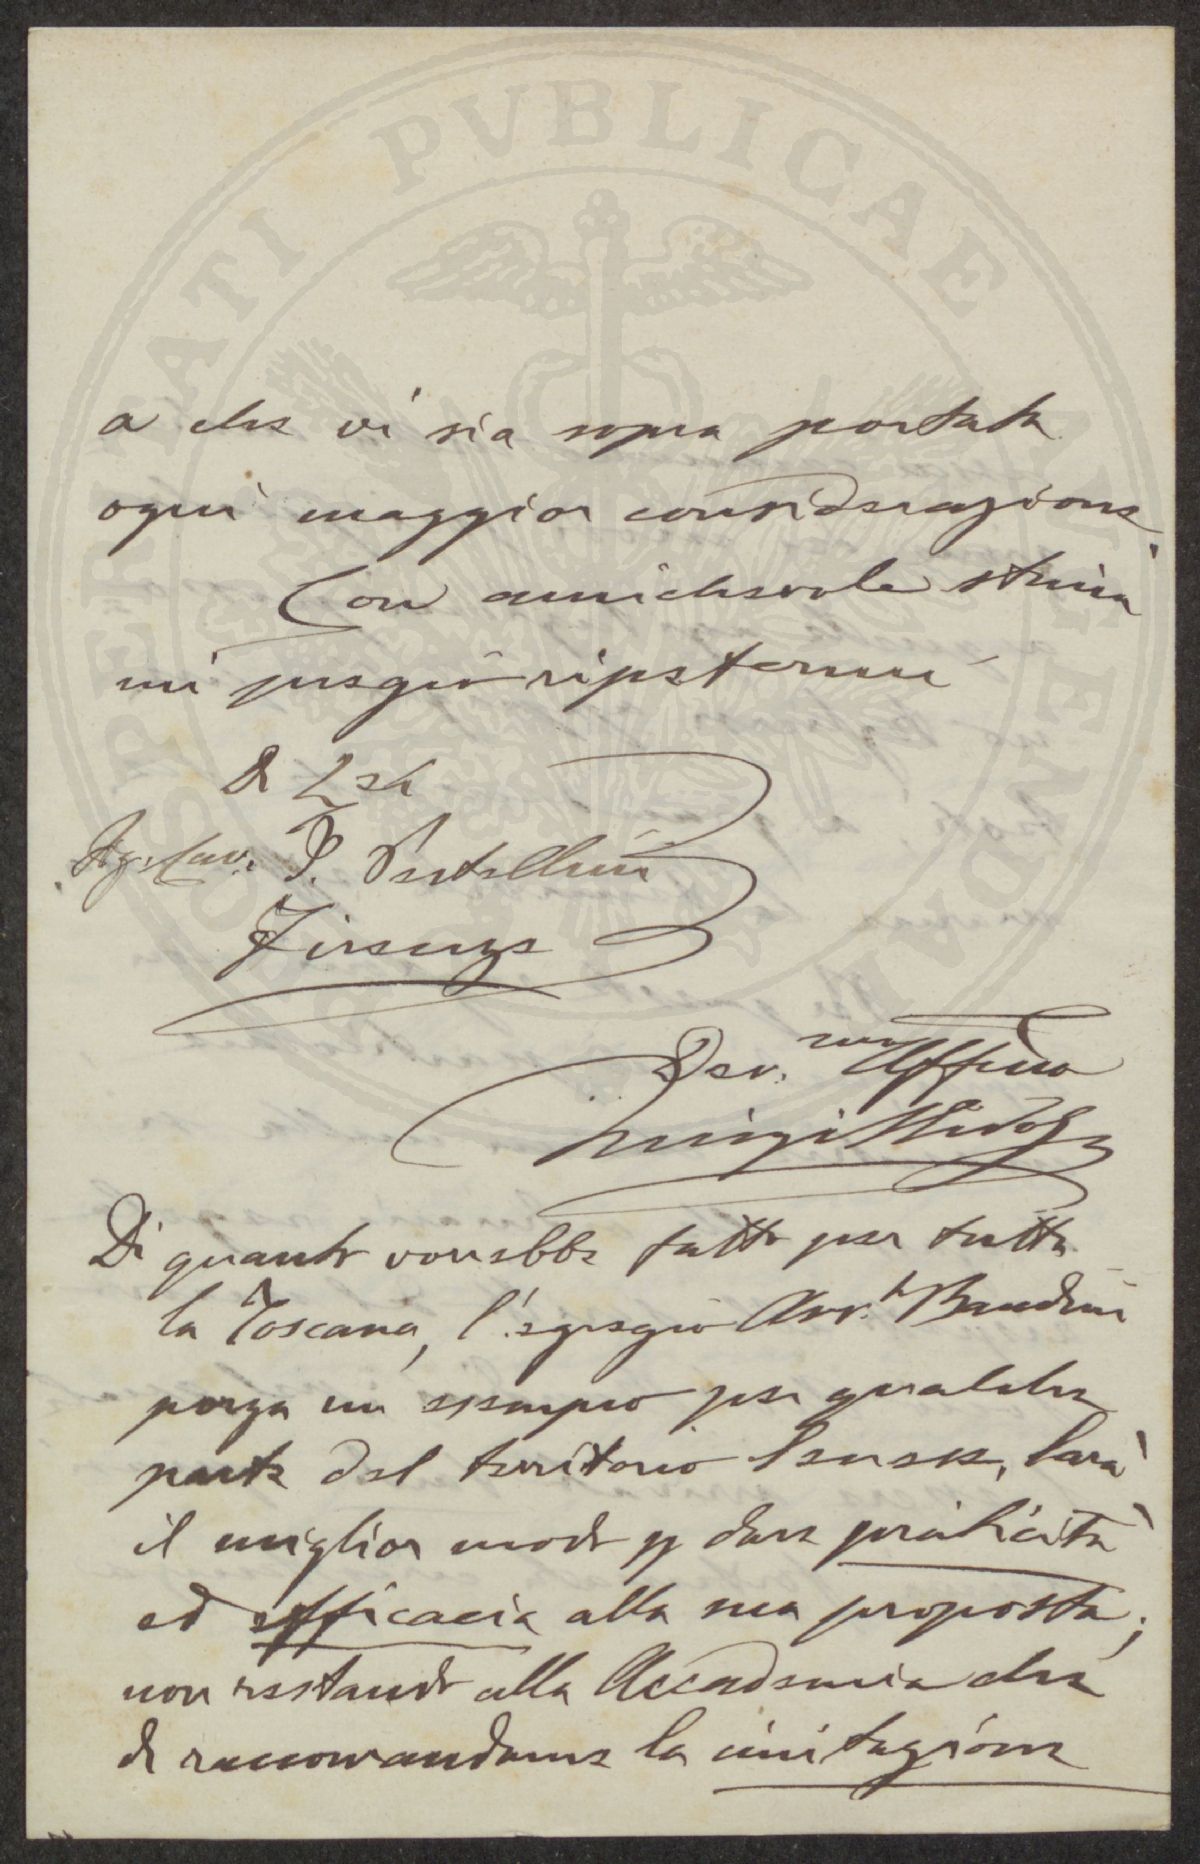 PROSPERITATI PVBLICAE AVGENDAE
a che vi sia sopra portata
ogni maggior considerazione.
Con amichevole stima
mi pregio ripetermi
Di Lei
Sig. Cav. P. Pestellini
Firenze
Dev.mo Aff.mo
Luigi
Di quanto vorrebbe fatto per tutta
la Toscana, l'egregio Avv.to Bandini
porga un esempio per qualche
parte del territorio Senese, Sarà
il miglior modo p dare praticità
ed efficacia alla sua proposta;
non restando alla Accademia che
di raccomandarne la imitazione